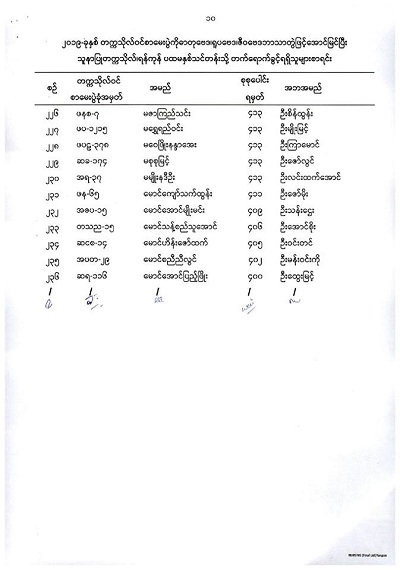 ၁၀
၂၀၁၉-ခုနှစ် တက္ကသိုလ်ဝင်စာမေးပွဲကိုဓာတုဗေဒ၊ရူပဗေဒ၊ဇီဝဗေဒဘာသာတွဲဖြင့်အောင်မြင်ပြီး
သူနာပြုတက္ကသိုလ်၊ရန်ကုန် ပထမနှစ်သင်တန်းသို့ တက်ရောက်ခွင့်ရရှိသူများစာရင်း
စဉ် တက္ကသိုလ်ဝင် စာမေးပွဲခုံအမှတ် အမည် စုစုပေါင်း ရမှတ် အဘအမည်
၂၂၆ ဖနစ-၇ မဇာကြည်သင်း ၄၁၃ ဦးစိန်ထွန်း
၂၂၇ ဖပ-၁၂၁၅ မရွှေရည်ဝင်း ၄၁၃ ဦးမျိုးမြင့်
၂၂၈ ဖပဋ္ဌ-၃၇၈ မဝေဖြိုးနန္ဒာအေး ၄၁၃ ဦးကြာမောင်
၂၂၉ ဆခ-၁၇၄ မစုစုမြင့် ၄၁၃ ဦးဇော်လွင်
၂၃၀ အရ-၃၇ မမျိုးနဒီဦး ၄၁၃ ဦးလင်းထက်အောင်
၂၃၁ ဖန-၆၅ မောင်ကျော်သက်ထွန်း ၄၁၁ ဦးဇော်မိုး
၂၃၂ အဇပ-၁၅ မောင်အောင်မျိုးမင်း ၄၀၉ ဦးသန်းဌေး
၂၃၃ တသည-၁၅ မောင်သန့်စည်သူအောင် ၄၀၆ ဦးအောင်စိုး
၂၃၄ ဆငစ-၁၄ မောင်ဟိန်းဇော်ထက် ၄၀၅ ဦးဝင်းတင်
၂၃၅ အပတ-၂၉ မောင်စညီညီလွင် ၄၀၂ ဦးမန်းဝင်းကို
၂၃၆ ဆရ-၁၁၆ မောင်အောင်ပြည့်ဖြိုး ၄၀၀ ဦးထွေးမြင့်
/ / / / /